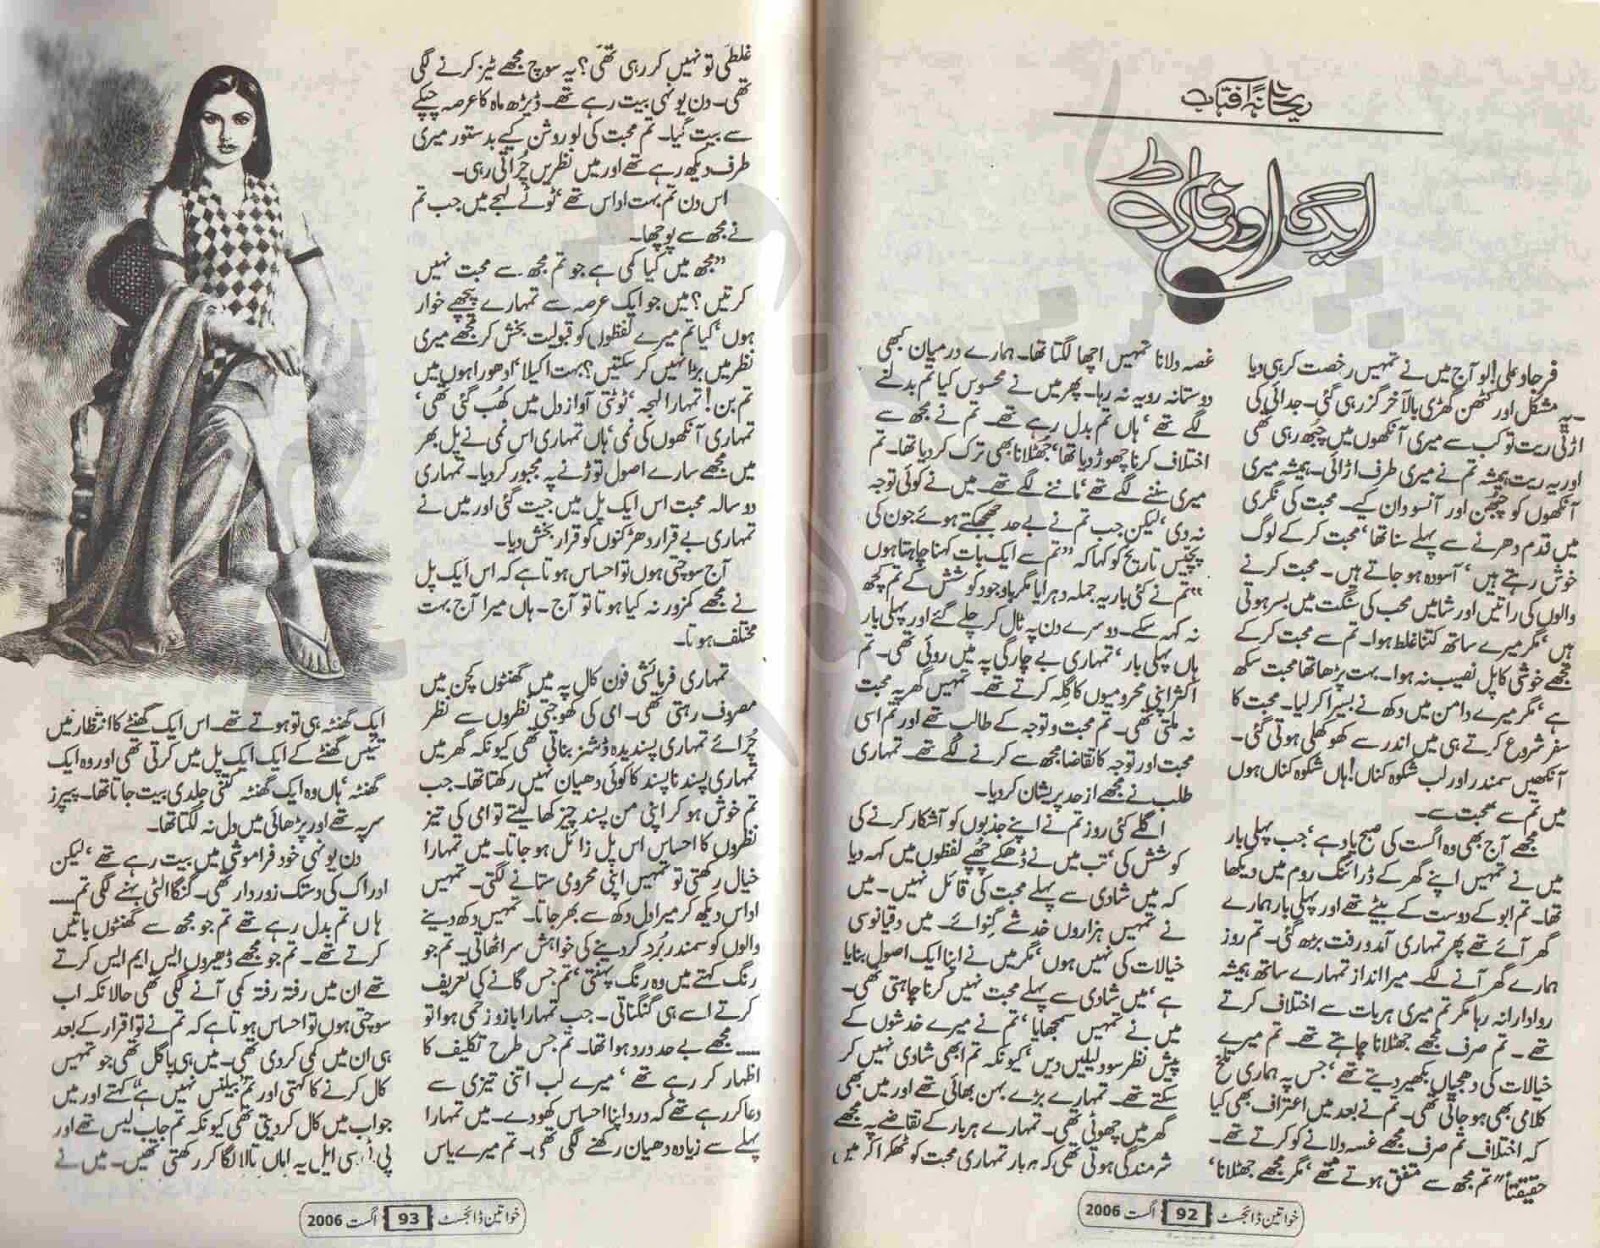 ریحانہ آفتاب
ایک اور فرہاد
فرحاد علی! لو آج میں نے تمہیں رخصت کر ہی دیا
۔ یہ مشکل اور کٹھن گھڑی بالآخر گزر ہی گئی۔ جدائی کی
اڑتی ریت تو کب سے میری آنکھوں میں چبھ رہی تھی
اور یہ ریت ہمیشہ تم نے میری طرف اڑائی۔ ہمیشہ میری
آنکھوں کو چبھن اور آنسو دان کیے۔ محبت کی نگری
میں قدم دھرنے سے پہلے سنا تھا، محبت کر کے لوگ
خوش رہتے ہیں، آسودہ ہو جاتے ہیں۔ محبت کرنے
والوں کی راتیں اور شامیں محب کی سنگت میں بسر ہوتی
ہیں، مگر میرے ساتھ کتنا غلط ہوا۔ تم سے محبت کر کے
مجھے خوشی کا پل نصیب نہ ہوا۔ بہت پڑھا تھا محبت سکھ
ہے، مگر میرے دامن میں دکھ نے بسیرا کر لیا۔ محبت کا
سفر شروع کرتے ہی میں اندر سے کھوکھلی ہوتی گئی۔
آنکھیں سمندر اور لب شکوہ کناں! ہاں شکوہ کناں ہوں
میں تم سے محبت سے۔
مجھے آج بھی وہ اگست کی صبح یاد ہے، جب پہلی بار
میں نے تمہیں اپنے گھر کے ڈرائنگ روم میں دیکھا
تھا۔ تم ابو کے دوست کے بیٹے تھے اور پہلی بار ہمارے
گھر آئے تھے پھر تمہاری آمد و رفت بڑھ گئی۔ تم روز
ہمارے گھر آنے لگے۔ میرا انداز تمہارے ساتھ ہمیشہ
روادارانہ رہا مگر تم میری ہر بات سے اختلاف کرتے
تھے۔ تم صرف مجھے جھٹلانا چاہتے تھے۔ تم میرے
خیالات کی دھجیاں بکھیر دیتے تھے، جس پہ ہماری تلخ
کلامی بھی ہو جاتی تھی۔ تم نے بعد میں اعتراف بھی کیا
کہ اختلاف تم صرف مجھے غصہ دلانے کو کرتے تھے۔
حقیقتاً" تم مجھ سے متفق ہوتے تھے، مگر مجھے جھٹلانا،
غصہ دلانا تمہیں اچھا لگتا تھا۔ ہمارے درمیان کبھی
دوستانہ رویہ نہ رہا۔ پھر میں نے محسوس کیا تم بدلنے
لگے تھے، ہاں تم بدل رہے تھے۔ تم نے مجھ سے
اختلاف کرنا چھوڑ دیا تھا، جھٹلانا بھی ترک کر دیا تھا۔ تم
میری سننے لگے تھے، ماننے لگے تھے۔ میں نے کوئی توجہ
نہ دی، لیکن جب تم نے بے حد جھجکتے ہوئے جون کی
پچیس تاریخ کو کہا کہ "تم سے ایک بات کہنا چاہتا ہوں
" تم نے کئی بار یہ جملہ دہرایا مگر باوجود کوشش کے تم کچھ
نہ کہہ سکے۔ دوسرے دن پہ ٹال کر چلے گئے اور پہلی بار
ہاں پہلی بار، تمہاری بے چارگی پہ میں روئی تھی۔ تم
اکثر اپنی محرومیوں کا گلہ کرتے تھے۔ تمہیں گھر پہ محبت
نہ ملتی تھی۔ تم محبت و توجہ کے طالب تھے اور تم اسی
محبت اور توجہ کا تقاضا مجھ سے کرنے لگے تھے۔ تمہاری
طلب نے مجھے از حد پریشان کر دیا۔
اگلے کئی روز تم نے اپنے جذبوں کو آشکار کرنے کی
کوشش کی، تب میں نے ڈھکے چھپے لفظوں میں کہہ دیا
کہ میں شادی سے پہلے محبت کی قائل نہیں۔ میں
نے تمہیں ہزاروں خدشے گنوائے۔ میں دقیانوسی
خیالات کی نہیں ہوں، مگر میں نے اپنا ایک اصول بنایا
ہے، میں شادی سے پہلے محبت نہیں کرنا چاہتی تھی۔
میں نے تمہیں سمجھایا، تم نے میرے خدشوں کے
پیش نظر سو دلیلیں دیں، کیونکہ تم ابھی شادی نہیں کر
سکتے تھے۔ تمہارے بڑے بہن بھائی تھے اور میں بھی
گھر میں چھوٹی تھی۔ تمہارے ہر بار کے تقاضے پہ مجھے
شرمندگی ہوتی تھی کہ ہر بار تمہاری محبت کو ٹھکرا کر میں
خواتین ڈائجسٹ 92 اگست 2006
غلطی تو نہیں کر رہی تھی؟ یہ سوچ مجھے ٹیز کرنے لگی
تھی۔ دن یونہی بیت رہے تھے۔ ڈیڑھ ماہ کا عرصہ چپکے
سے بیت گیا۔ تم محبت کی لو روشن کیے بدستور میری
طرف دیکھ رہے تھے اور میں نظریں چراتی رہی۔
اس دن تم بہت اداس تھے، ٹوٹے لہجے میں جب تم
نے مجھ سے پوچھا۔
"مجھ میں کیا کمی ہے جو تم مجھ سے محبت نہیں
کرتیں؟ میں جو ایک عرصہ سے تمہارے پیچھے خوار
ہوں، کیا تم میرے لفظوں کو قبولیت بخش کر مجھے میری
نظر میں بڑا نہیں کر سکتیں؟ بہت اکیلا، ادھورا ہوں میں
تم بن! تمہارا لہجہ، ٹوٹتی آواز دل میں کھب گئی تھی،
تمہاری آنکھوں کی نمی، ہاں تمہاری اس نمی نے پل بھر
میں مجھے سارے اصول توڑنے پہ مجبور کر دیا۔ تمہاری
دو سالہ محبت اس ایک پل میں جیت گئی اور میں نے
تمہاری بے قرار دھڑکنوں کو قرار بخش دیا۔
آج سوچتی ہوں تو احساس ہوتا ہے کہ اس ایک پل
نے مجھے کمزور نہ کیا ہوتا تو آج۔ ہاں میرا آج بہت
مختلف ہوتا۔
تمہاری فرمائشی فون کال پہ میں گھنٹوں کچن میں
مصروف رہتی تھی۔ امی کی کھوجتی نظروں سے نظر
چرائے تمہاری پسندیدہ ڈشنز بناتی تھی کیونکہ گھر میں
تمہاری پسند ناپسند کا کوئی دھیان نہیں رکھتا تھا۔ جب
تم خوش ہو کر اپنی من پسند چیز کھا لیتے تو امی کی تیز
نظروں کا احساس اس پل زائل ہو جاتا۔ میں تمہارا
خیال رکھتی تو تمہیں اپنی محرومی ستانے لگتی۔ تمہیں
اداس دیکھ کر میرا دل دکھ سے بھر جاتا۔ تمہیں دکھ دینے
والوں کو سمندر برد کر دینے کی خواہش سر اٹھاتی۔ تم جو
رنگ کہتے میں وہ رنگ پہنتی، تم جس گانے کی تعریف
کرتے اسے ہی گنگناتی۔ جب تمہارا بازو زخمی ہوا تو
..... مجھے بے حد درد ہوا تھا۔ تم جس طرح تکلیف کا
اظہار کر رہے تھے، میرے لب اتنی تیزی سے
دعا کر رہے تھے کہ درد اپنا احساس کھو دے۔ میں تمہارا
پہلے سے زیادہ دھیان رکھنے لگی تھی۔ تم میرے پاس
ایک گھنٹہ ہی تو ہوتے تھے۔ اس ایک گھنٹے کا انتظار میں
تئیس گھنٹے کے ایک ایک پل میں کرتی تھی اور وہ ایک
گھنٹہ، ہاں وہ ایک گھنٹہ کتنی جلدی بیت جاتا تھا۔ پیپرز
سر پہ تھے اور پڑھائی میں دل نہ لگتا تھا۔
دن یونہی خود فراموشی میں بیت رہے تھے، لیکن
ادراک کی دستک زوردار تھی۔ گنگا الٹی بہنے لگی تم.....
ہاں تم بدل رہے تھے تم جو مجھ سے گھنٹوں باتیں
کرتے تھے۔ تم جو مجھے ڈھیروں ایس ایم ایس کرتے
تھے ان میں رفتہ رفتہ کمی آنے لگی تھی حالانکہ اب
سوچتی ہوں تو احساس ہوتا ہے کہ تم نے تو اقرار کے بعد
ہی ان میں کمی کر دی تھی۔ میں ہی پاگل تھی جو تمہیں
کال کرنے کا کہتی اور تم "بیلنس نہیں ہے" کہتے اور میں
جواب میں کال کر دیتی تھی کیونکہ تم جاب لیس تھے اور
پی ٹی سی ایل پہ اماں تالا لگا کر رکھتی تھیں۔ میں نے
خواتین ڈائجسٹ 93 اگست 2006